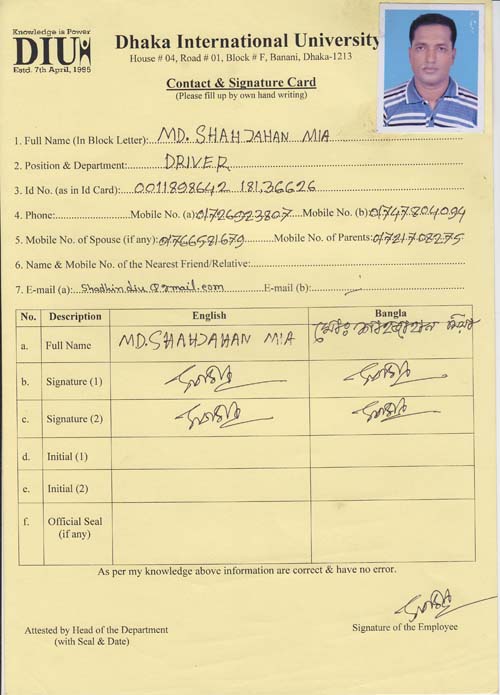 Knowledge is Power
DIU
Estd. 7th April, 1995
Dhaka International University
House # 04, Road # 01, Block # F, Banani, Dhaka-1213
Contact & Signature Card
(Please fill up by own hand writing)
1. Full Name (In Block Letter): MD. SHAHJAHAN MIA
2. Position & Department: DRIVER
3. Id No. (as in Id Card): 0011898642 181,36626
4. Phone: Mobile No. (a) 01726923807 Mobile No. (b) 01747804094
5. Mobile No. of Spouse (if any): 01766581679 Mobile No. of Parents: 01721708275
6. Name & Mobile No. of the Nearest Friend/Relative:
7. E-mail (a): Shadhindiu@gmail.com E-mail (b):
No. Description English Bangla
a. Full Name MD. SHAHJAHAN MIA মোঃ শাহজাহান মিয়া
b. Signature (1)
c. Signature (2)
d. Initial (1)
e. Initial (2)
f. Official Seal
(if any)
As per my knowledge above information are correct & have no error.
Attested by Head of the Department
(with Seal & Date)
Signature of the Employee